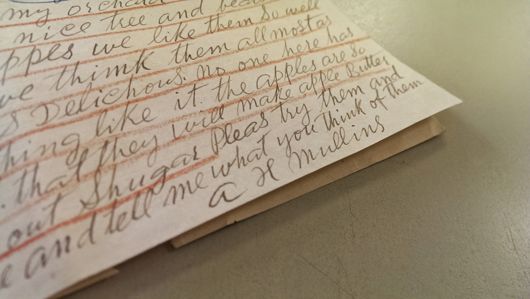 my orchard
nice tree and bea
ppes we like them so well
we think them allmost as
s Delichous. no one here has
hing like it. the apples are so
. that they will make apple Butter
out Shugar Pleas try them and
e and tell me what you think of them
A H Mullins